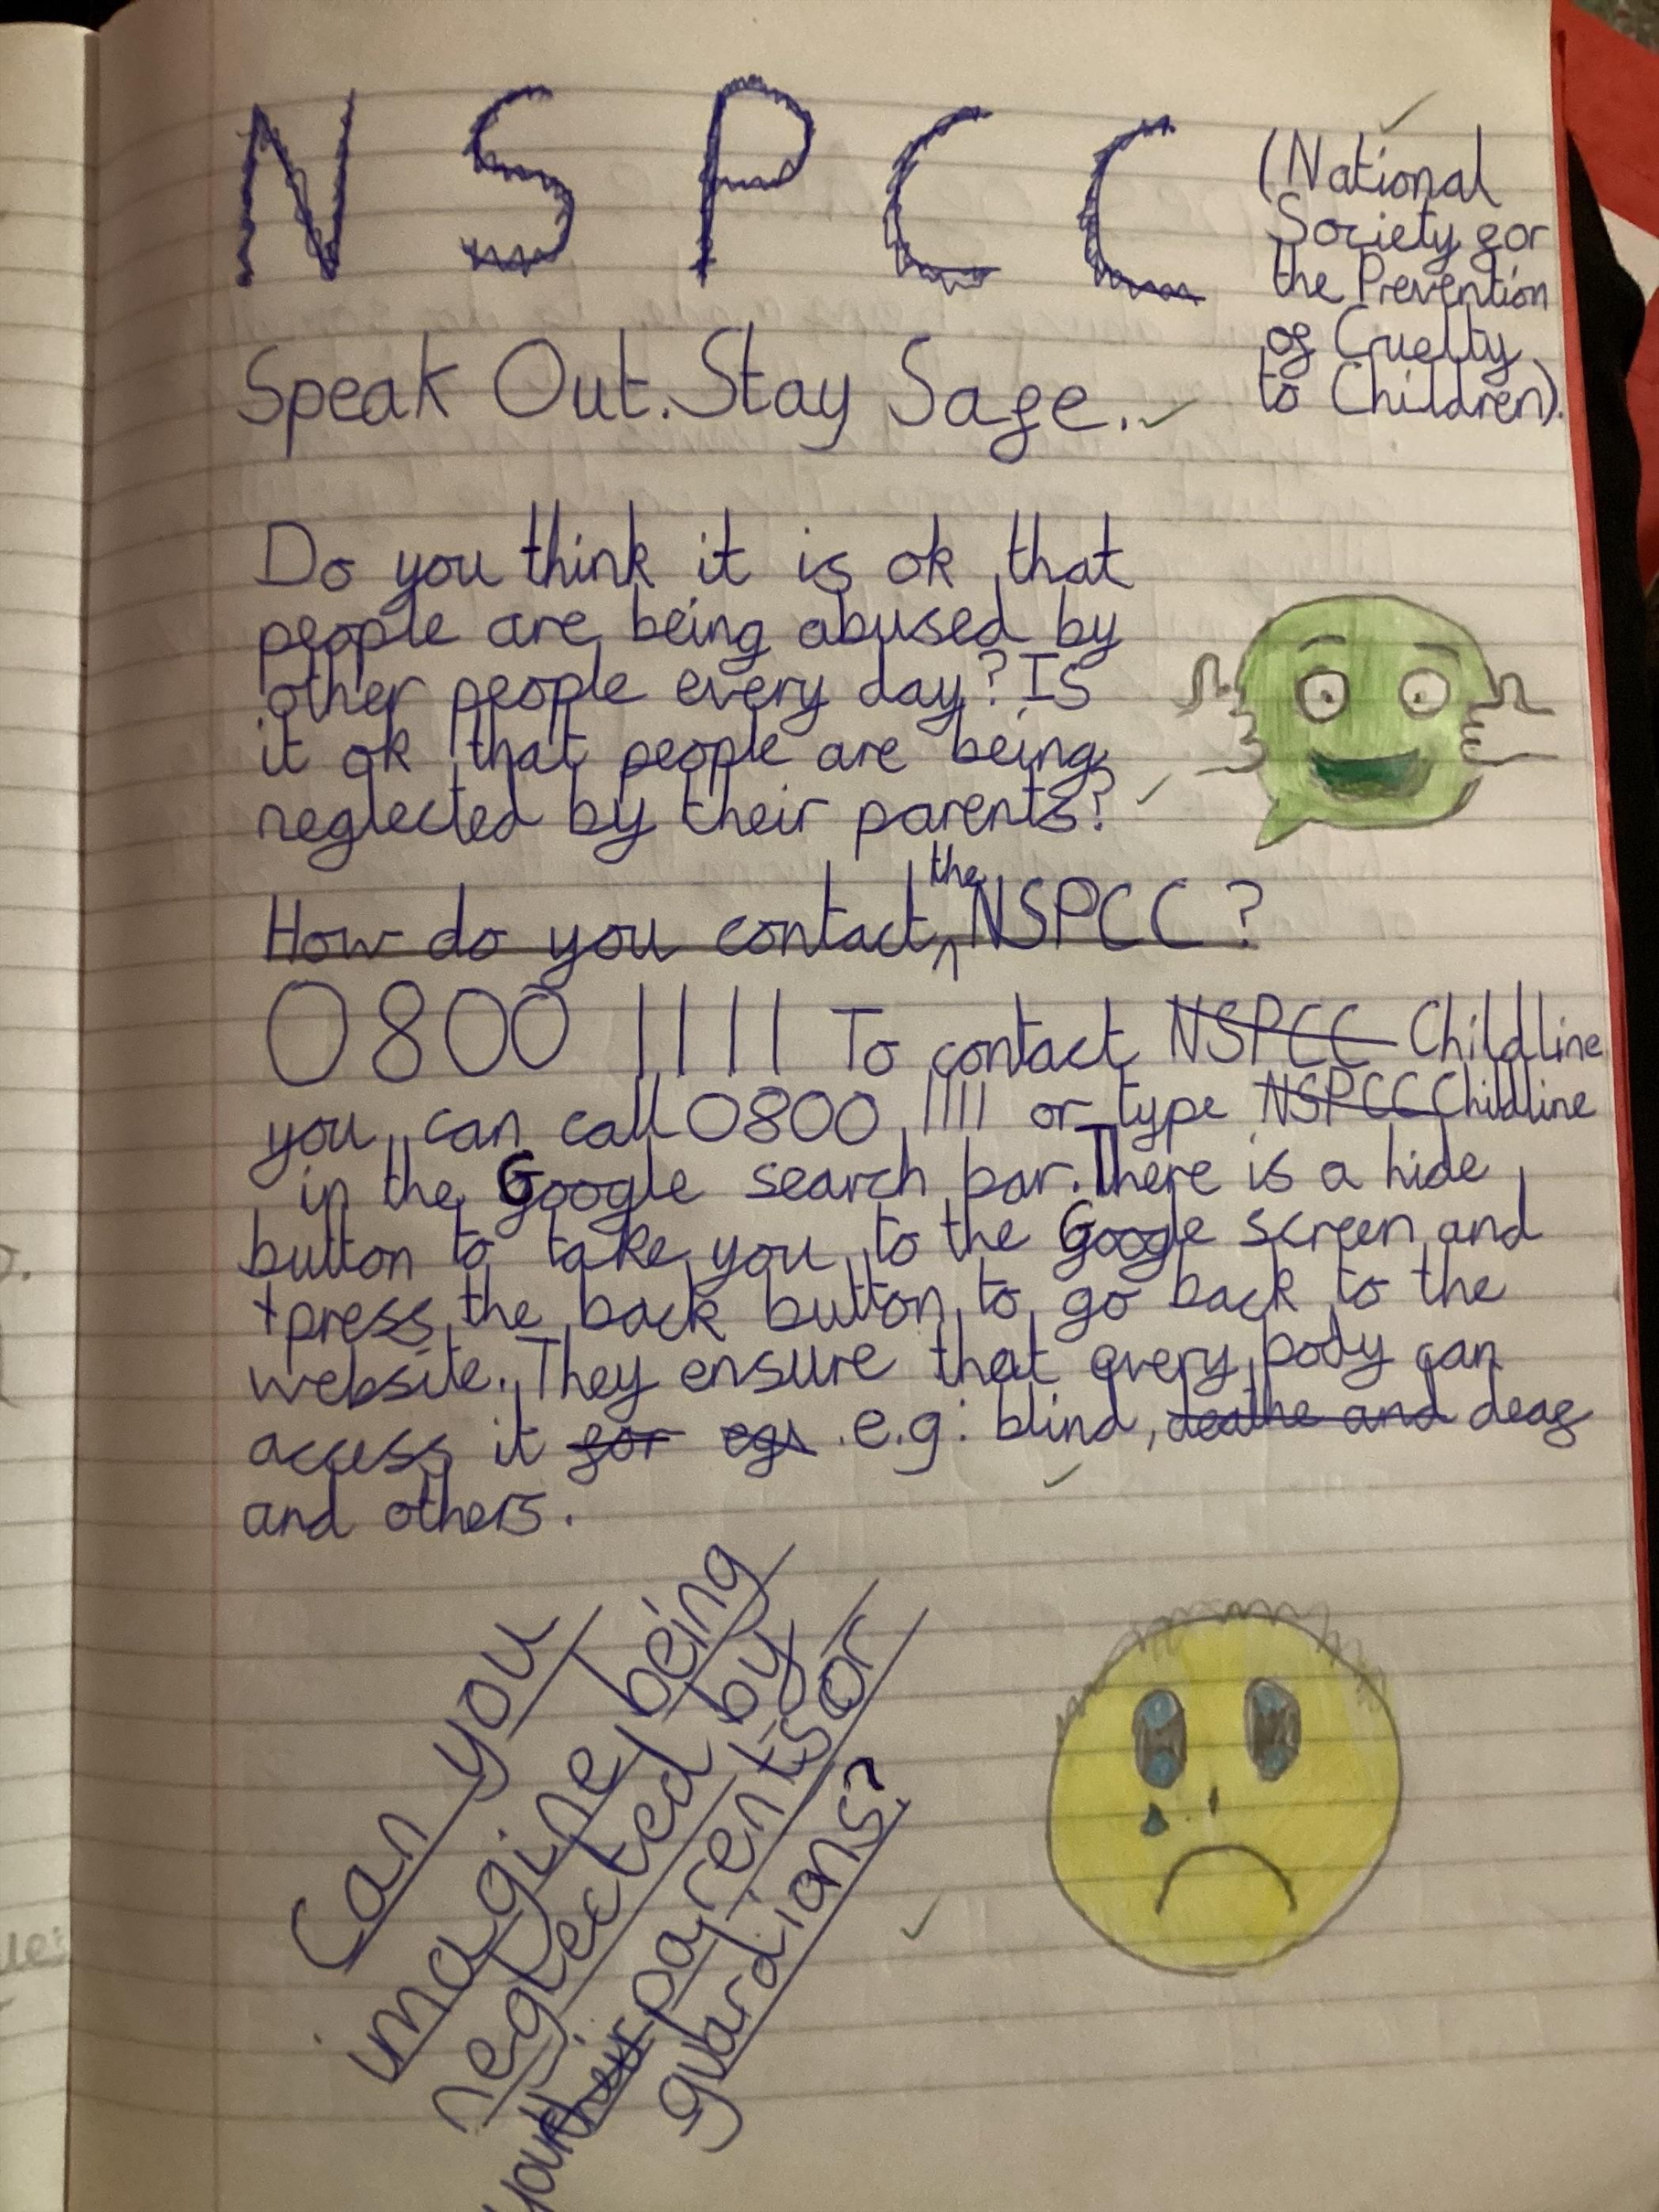 N S P C C
(National
Society for
the Prevention
of Cruelty
to Children).
Speak Out. Stay Safe.
Do you think it is ok that
people are being abused by
other people every day? Is
it ok that people are being
neglected by their parents?
How do you contact the NSPCC?
0800 1111 To contact NSPCC Childline
you can call 0800 1111 or type NSPCC Childline
in the Google search bar. There is a hide
button to take you to the Google screen and
press the back button to go back to the
website. They ensure that every body can
access it for egs e.g: blind, deathe and deaf
and others.
Can you
imagine being
neglected by
your their parents or
guardians?